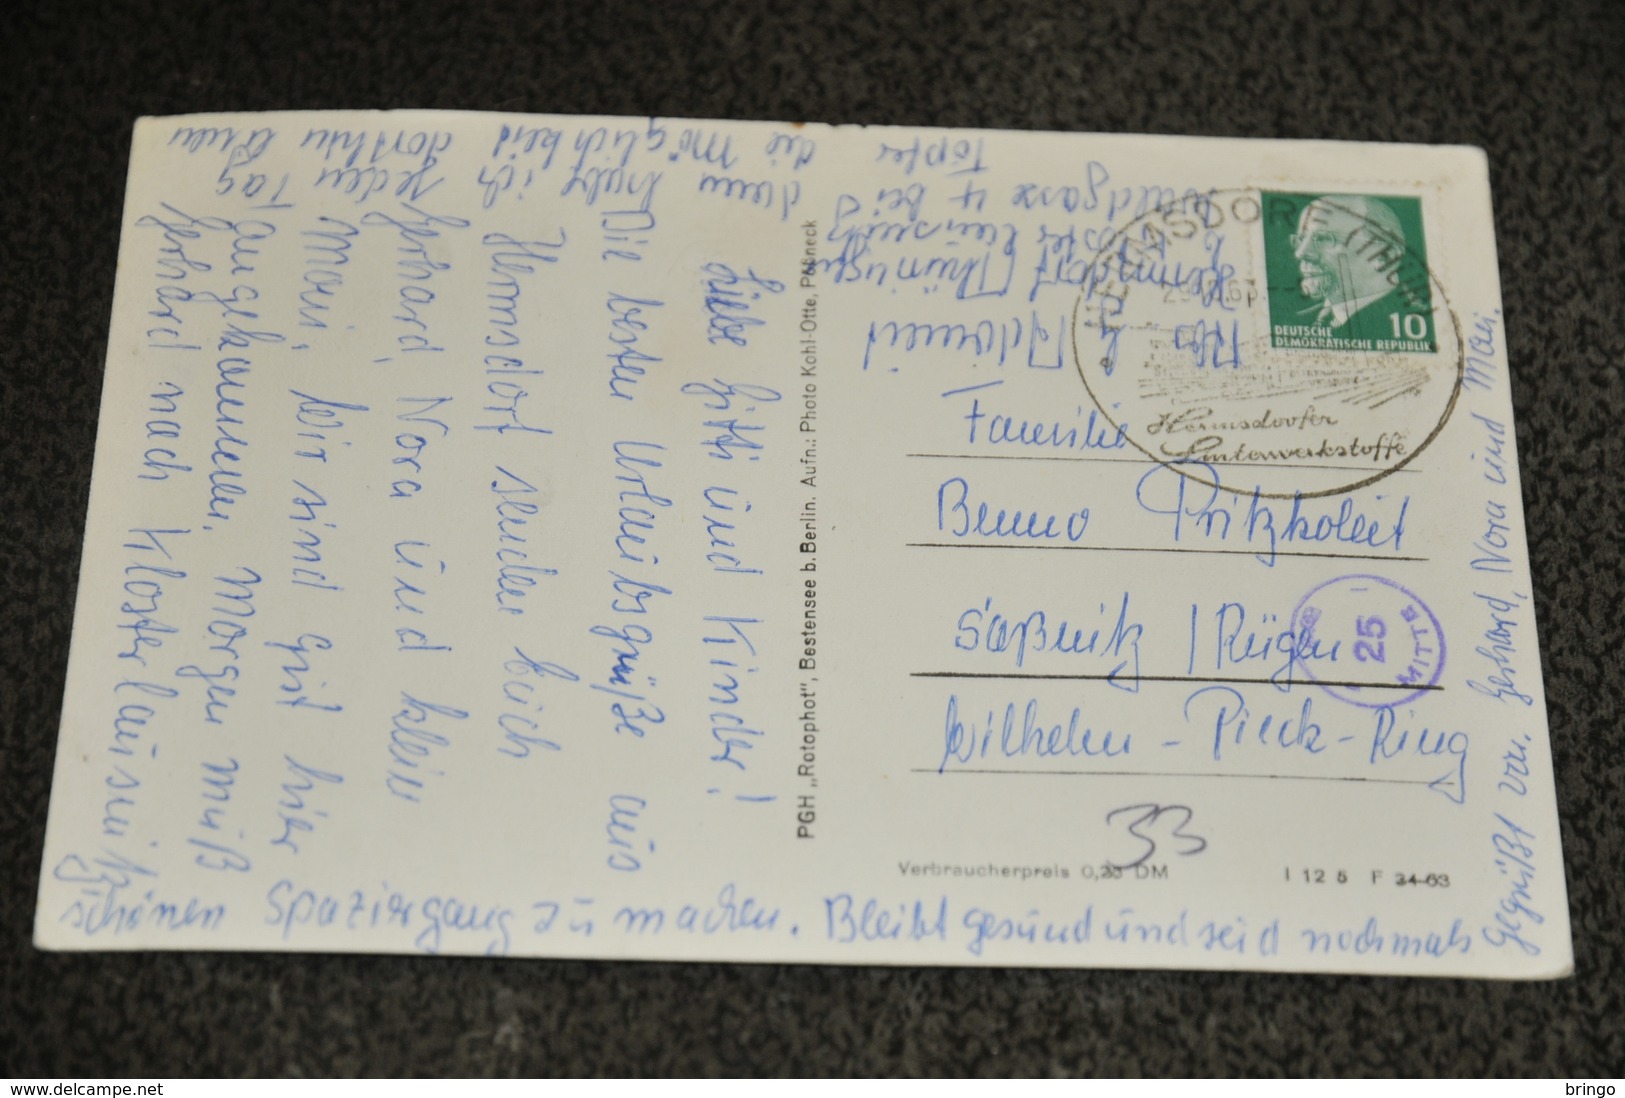 Liebe Gitti und Kinder!
Die besten Urlaubsgrüße aus
Hermsdorf senden Euch
Gerhard, Nora und klein
Mari. Wir sind gut hier
angekommen. Morgen muß
Gerhard nach Klosterlausnitz
dann habe ich jeden Tag
die Möglichkeit dorthin einen
schönen Spaziergang zu machen. Bleibt gesund und seid nochmals
gegrüßt von Gerhard, Nora und Mari.
PGH „Rotophot", Bestensee b. Berlin. Aufn.: Photo Kohl-Otte, Pößneck
Hermsdorf /Thüringen
Klosterlausnitz
Waldgasse 4 bei
Töpfer
HERMSDORF (THÜR)
Hermsdorfer
Sinterwerkstoffe
10
DEUTSCHE
DEMOKRATISCHE REPUBLIK
Familie
Bruno Pritzkoleit
Saßnitz / Rügen
Wilhelm-Pieck-Ring
25
MITTE
33
Verbraucherpreis 0,25 DM
I 12 5 F 34-63
bringo